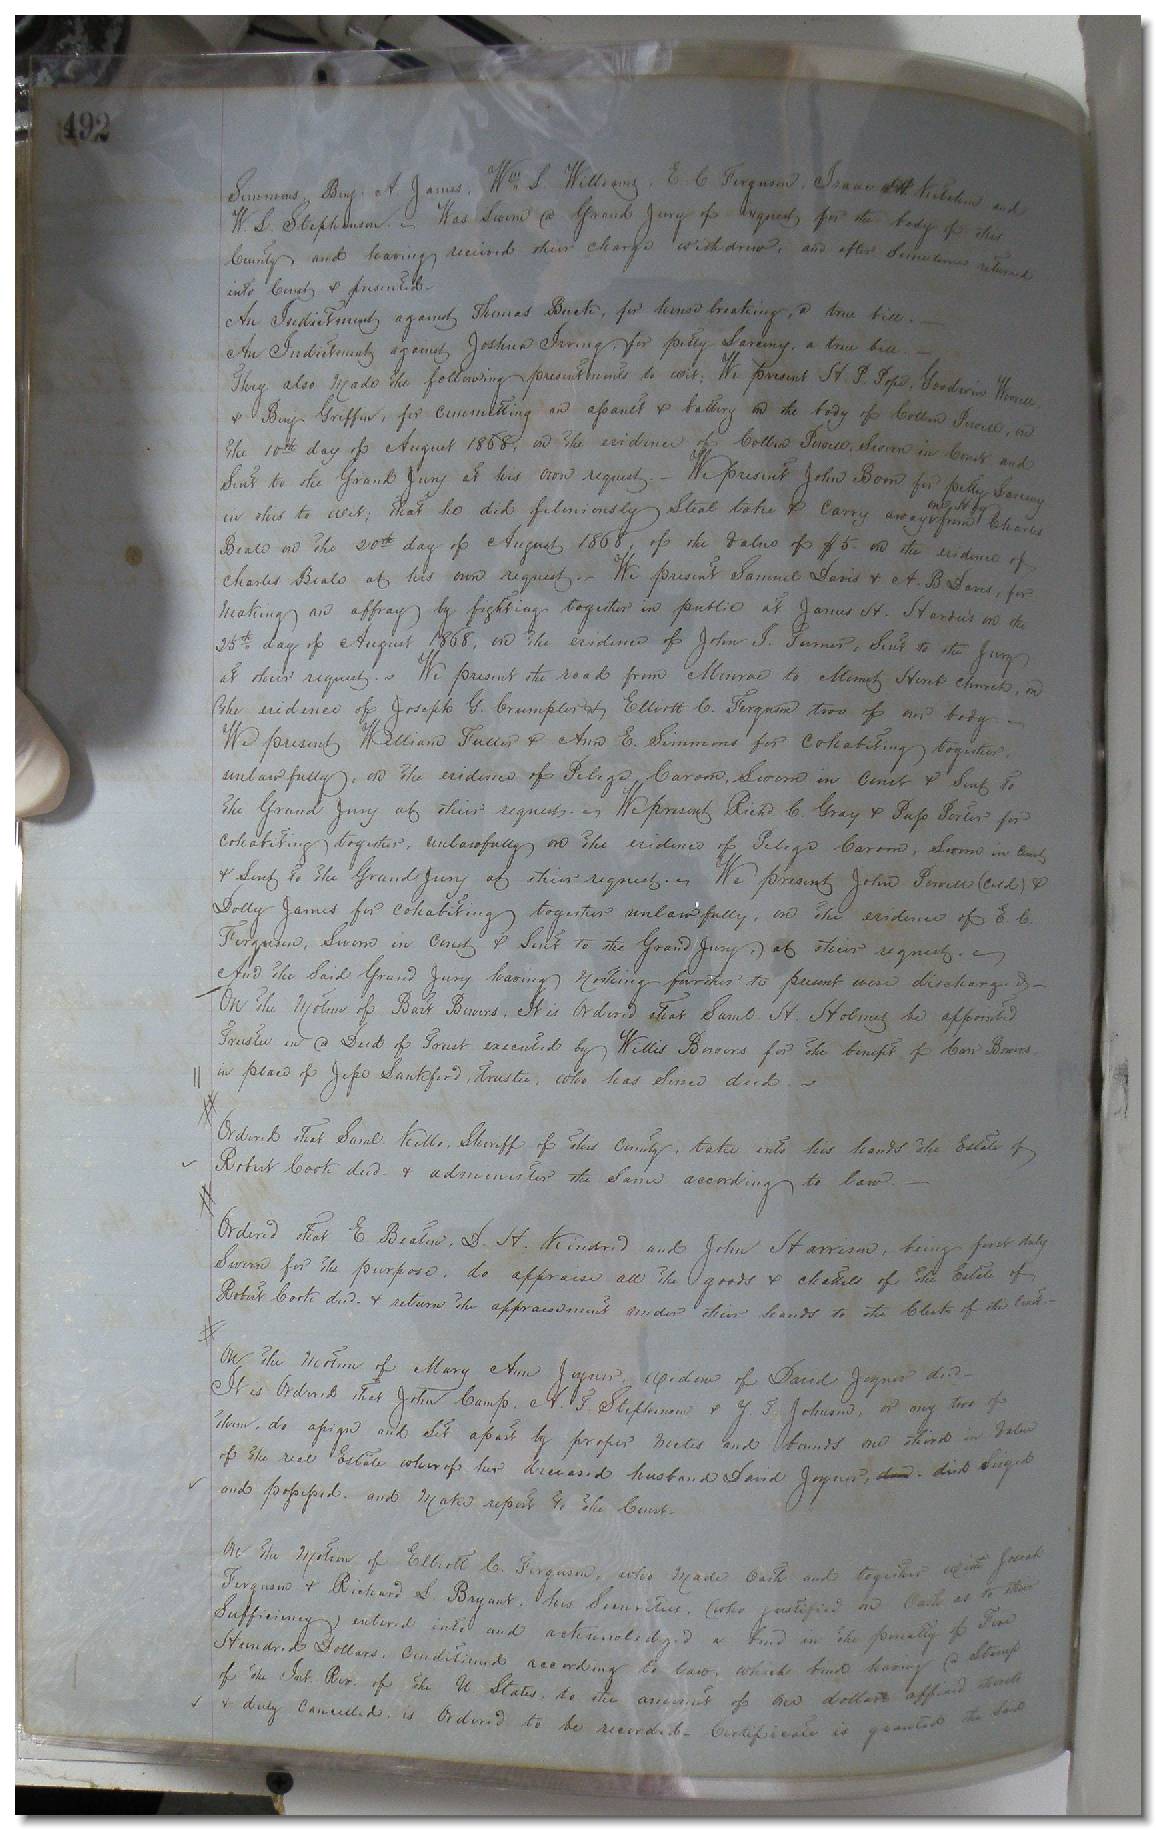 492
Simmons, Benj. A James, Wm S. Williams, E. C. Ferguson, Isaac and
W. S. Stephenson. Was Sworn a Grand Jury of inquest for the body of this
County, and having received their charge withdrew, and after Sometime returned
into Court & presented.
An Indictment against Thomas Bush, for house breaking, a true bill.
An Indictment against Joshua Irving for petty Larceny, a true bill.
They also Made the following presentments to wit; We present H. P. Pope, Goodwin
& Benj. Griffin, for committing an assault & battery on the body of Collin Powell, on
the 10th day of August 1868, on the evidence of Collin Powell, Sworn in Court and
Sent to the Grand Jury at his own request. We present John Boon for petty Larceny
in this to wit; that he did feloniously Steal take & Carry away from Charles
Beale on the 20th day of August 1868, of the Value of $5. on the evidence of
Charles Beale at his own request. We present Samuel Davis & A. B Davis, for
Making an affray by fighting together in public at James H. on the
25th day of August 1868, on the evidence of John J. Turner, Sent to the Jury
at their request. We present the road from Monroe to Church, on
the evidence of Joseph G. Crumpler & Elliott C. Ferguson two of our body
We present William Fuller & Ann E. Simmons for Cohabiting together,
unlawfully, on the evidence of Carom, Sworn in Court & Sent to
the Grand Jury at their request. We present Richd C. Gray & Porter for
cohabiting together, unlawfully on the evidence of Carom, Sworn in Court
& Sent to the Grand Jury at their request. We present John Powell (cold) &
Dolly James for cohabiting together unlawfully, on the evidence of E. C.
Ferguson, Sworn in Court & Sent to the Grand Jury, at their request.
And the Said Grand Jury having Nothing further to present were discharged
On the Motion of Bowers, It is Ordered that Saml. H. Holmes be appointed
Trustee in a Deed of Trust executed by Willis Bowers for the benefit of Bowers
in place of Jesse Lankford, trustee, who has Since died.
Ordered that Saml. Kello, Sheriff of this County, take into his hands the Estate of
Robert Cook decd. & administer the Same according to law.
Ordered that E Beaton, D. H. Kindred and John Harrison, being first duly
Sworn for the purpose, do appraise all the goods & chattels of the Estate of
Robert Cook decd. & return the appraisement under their hands to the Clerk of the Court
On the Motion of Mary Ann Joyner, widow of David Joyner decd.
It is Ordered that John Camp, A. T. Stephenson & J. T. Johnson, or any two of
them, do assign and Set apart by proper Metes and bounds one third in Value
of the real Estate whereof her deceased husband David Joyner, decd. died Siezed
and possessed, and Make report to the Court.
On the Motion of Elliott C. Ferguson, who Made Oath and together with Josiah
Ferguson & Richard S. Bryant, his Securities, (who justified on Oath as to their
Sufficiency) entered into and acknowledged a bond in the penalty of Five
Hundred Dollars, Conditioned according to law, which bond having a Stamp
of the Int. Rev. of the U States, to the amount of one dollar affixed thereto
& duly Cancelled, is Ordered to be recorded. Certificate is granted the Said